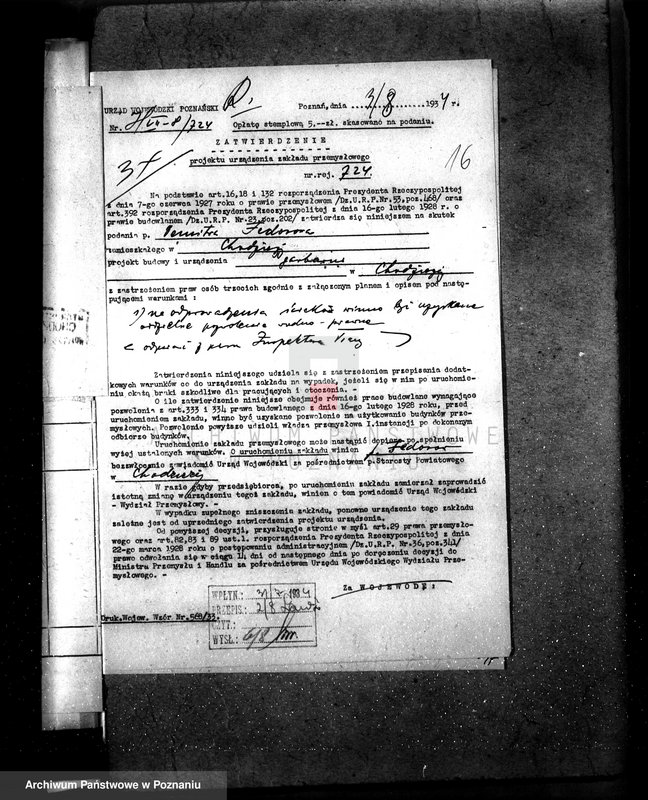 URZĄD WOJEWÓDZKI POZNAŃSKI
Poznań, dnia 3/8 1934 r.
Nr.
Opłatę stemplową 5,--zł. skasowano na podaniu.
ZATWIERDZENIE
16
projektu urządzenia zakładu przemysłowego
nr.rej. 724.
Na podstawie art.16,18 i 132 rozporządzenia Prezydenta Rzeczypospolitej
z dnia 7-go czerwca 1927 roku o prawie przemysłowem /Dz.U.R.P.Nr.53,poz.468/ oraz
art.392 rozporządzenia Prezydenta Rzeczypospolitej z dnia 16-go lutego 1928 r. o
prawie budowlanem /Dz.U.R.P. Nr.23,poz.202/ zatwierdza się niniejszem na skutek
podania p. Demitra Fedorowa
zamieszkałego w Chodzieży
projekt budowy i urządzenia garbarni
w Chodzieży
z zastrzeżeniem praw osób trzecich zgodnie z załączonym planem i opisem pod nastę-
pującemi warunkami :
1) na odprowadzenie ścieków winno być uzyskane
oddzielne
wodno - prawne
Inspektora Pracy
Zatwierdzenia niniejszego udziela się z zastrzeżeniem przepisania dodat-
kowych warunków co do urządzenia zakładu na wypadek, jeżeli się w nim po uruchomie-
niu okażą braki szkodliwe dla pracujących i otoczenia. -
O ile zatwierdzenie niniejsze obejmuje również prace budowlane wymagające
pozwolenia z art.333 i 334 prawa budowlanego z dnia 16-go lutego 1928 roku, przed
uruchomieniem zakładu, winno być uzyskane pozwolenie na użytkowanie budynków prze-
mysłowych. Pozwolenie powyższe udzieli władza przemysłowa I.instancji po dokonanym
odbiorze budynków.
Uruchomienie zakładu przemysłowego może nastąpić dopiero po spełnieniu
wyżej ustalonych warunków. O uruchomieniu zakładu winien p. Fedorow
bezzwłocznie zawiadomić Urząd Wojewódzki za pośrednictwem p.Starosty Powiatowego
w Chodzieży
W razie gdyby przedsiębiorca, po uruchomieniu zakładu zamierzał zaprowadzić
istotną zmianę w urządzeniu tegoż zakładu, winien o tem powiadomić Urząd Wojewódzki
- Wydział Przemysłowy. -
W wypadku zupełnego zniszczenia zakładu, ponowne urządzenie tego zakładu
zależne jest od uprzedniego zatwierdzenia projektu urządzenia.
Od powyższej decyzji, przysługuje stronie w myśl art.29 prawa przemysło-
wego oraz art.82,83 i 89 ust.1. rozporządzenia Prezydenta Rzeczypospolitej z dnia
22-go marca 1928 roku o postępowaniu administracyjnem /Dz.U.R.P. Nr.36,poz.341/
prawo odwołania się w ciągu 14 dni od następnego dnia po doręczeniu decyzji do
Ministra Przemysłu i Handlu za pośrednictwem Urzędu Wojewódzkiego Wydziału Prze-
mysłowego. -
Za WOJEWODĘ:
WPŁYN.: 31/7 1934
PRZEPIS.: 2/8
CZYT.:
WYSŁ.: 6/8
Druk.Wojew. Wzór Nr.568/33.
Archiwum Państwowe w Poznaniu